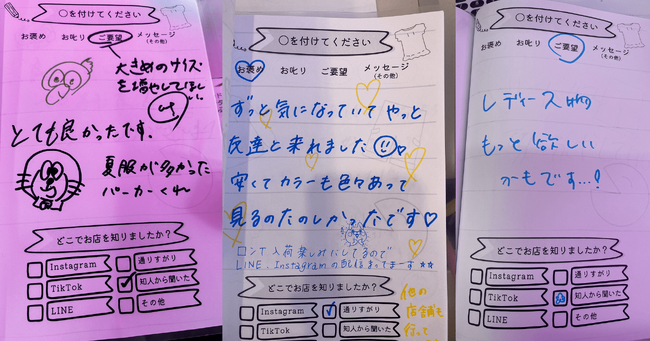 ○を付けてください
お褒め お叱り ご要望 メッセージ
(その他)
大きめのサイズ
を増やしてほしい
とても良かったです。
夏服が多かった
パーカーくれ
どこでお店を知りましたか?
Instagram 通りすがり
TikTok 知人から聞いた
LINE その他
○を付けてください
お褒め お叱り ご要望 メッセージ
(その他)
ずっと気になっていて やっと
友達と来れました!!
安くてカラーも色々あって
見るのたのしかったです♡
入荷楽しみにしてるので
LINE、Instagramの配信まってまーす☆☆
どこでお店を知りましたか?
Instagram 通りすがり
TikTok 知人から聞いた
他の
店舗も
行って
○を付けてください
お褒め お叱り ご要望 メッセージ
(その他)
レディース物
もっと欲しい
かもです…!
どこでお店を知りましたか?
Instagram 通りすがり
TikTok 知人から聞いた
LINE その他